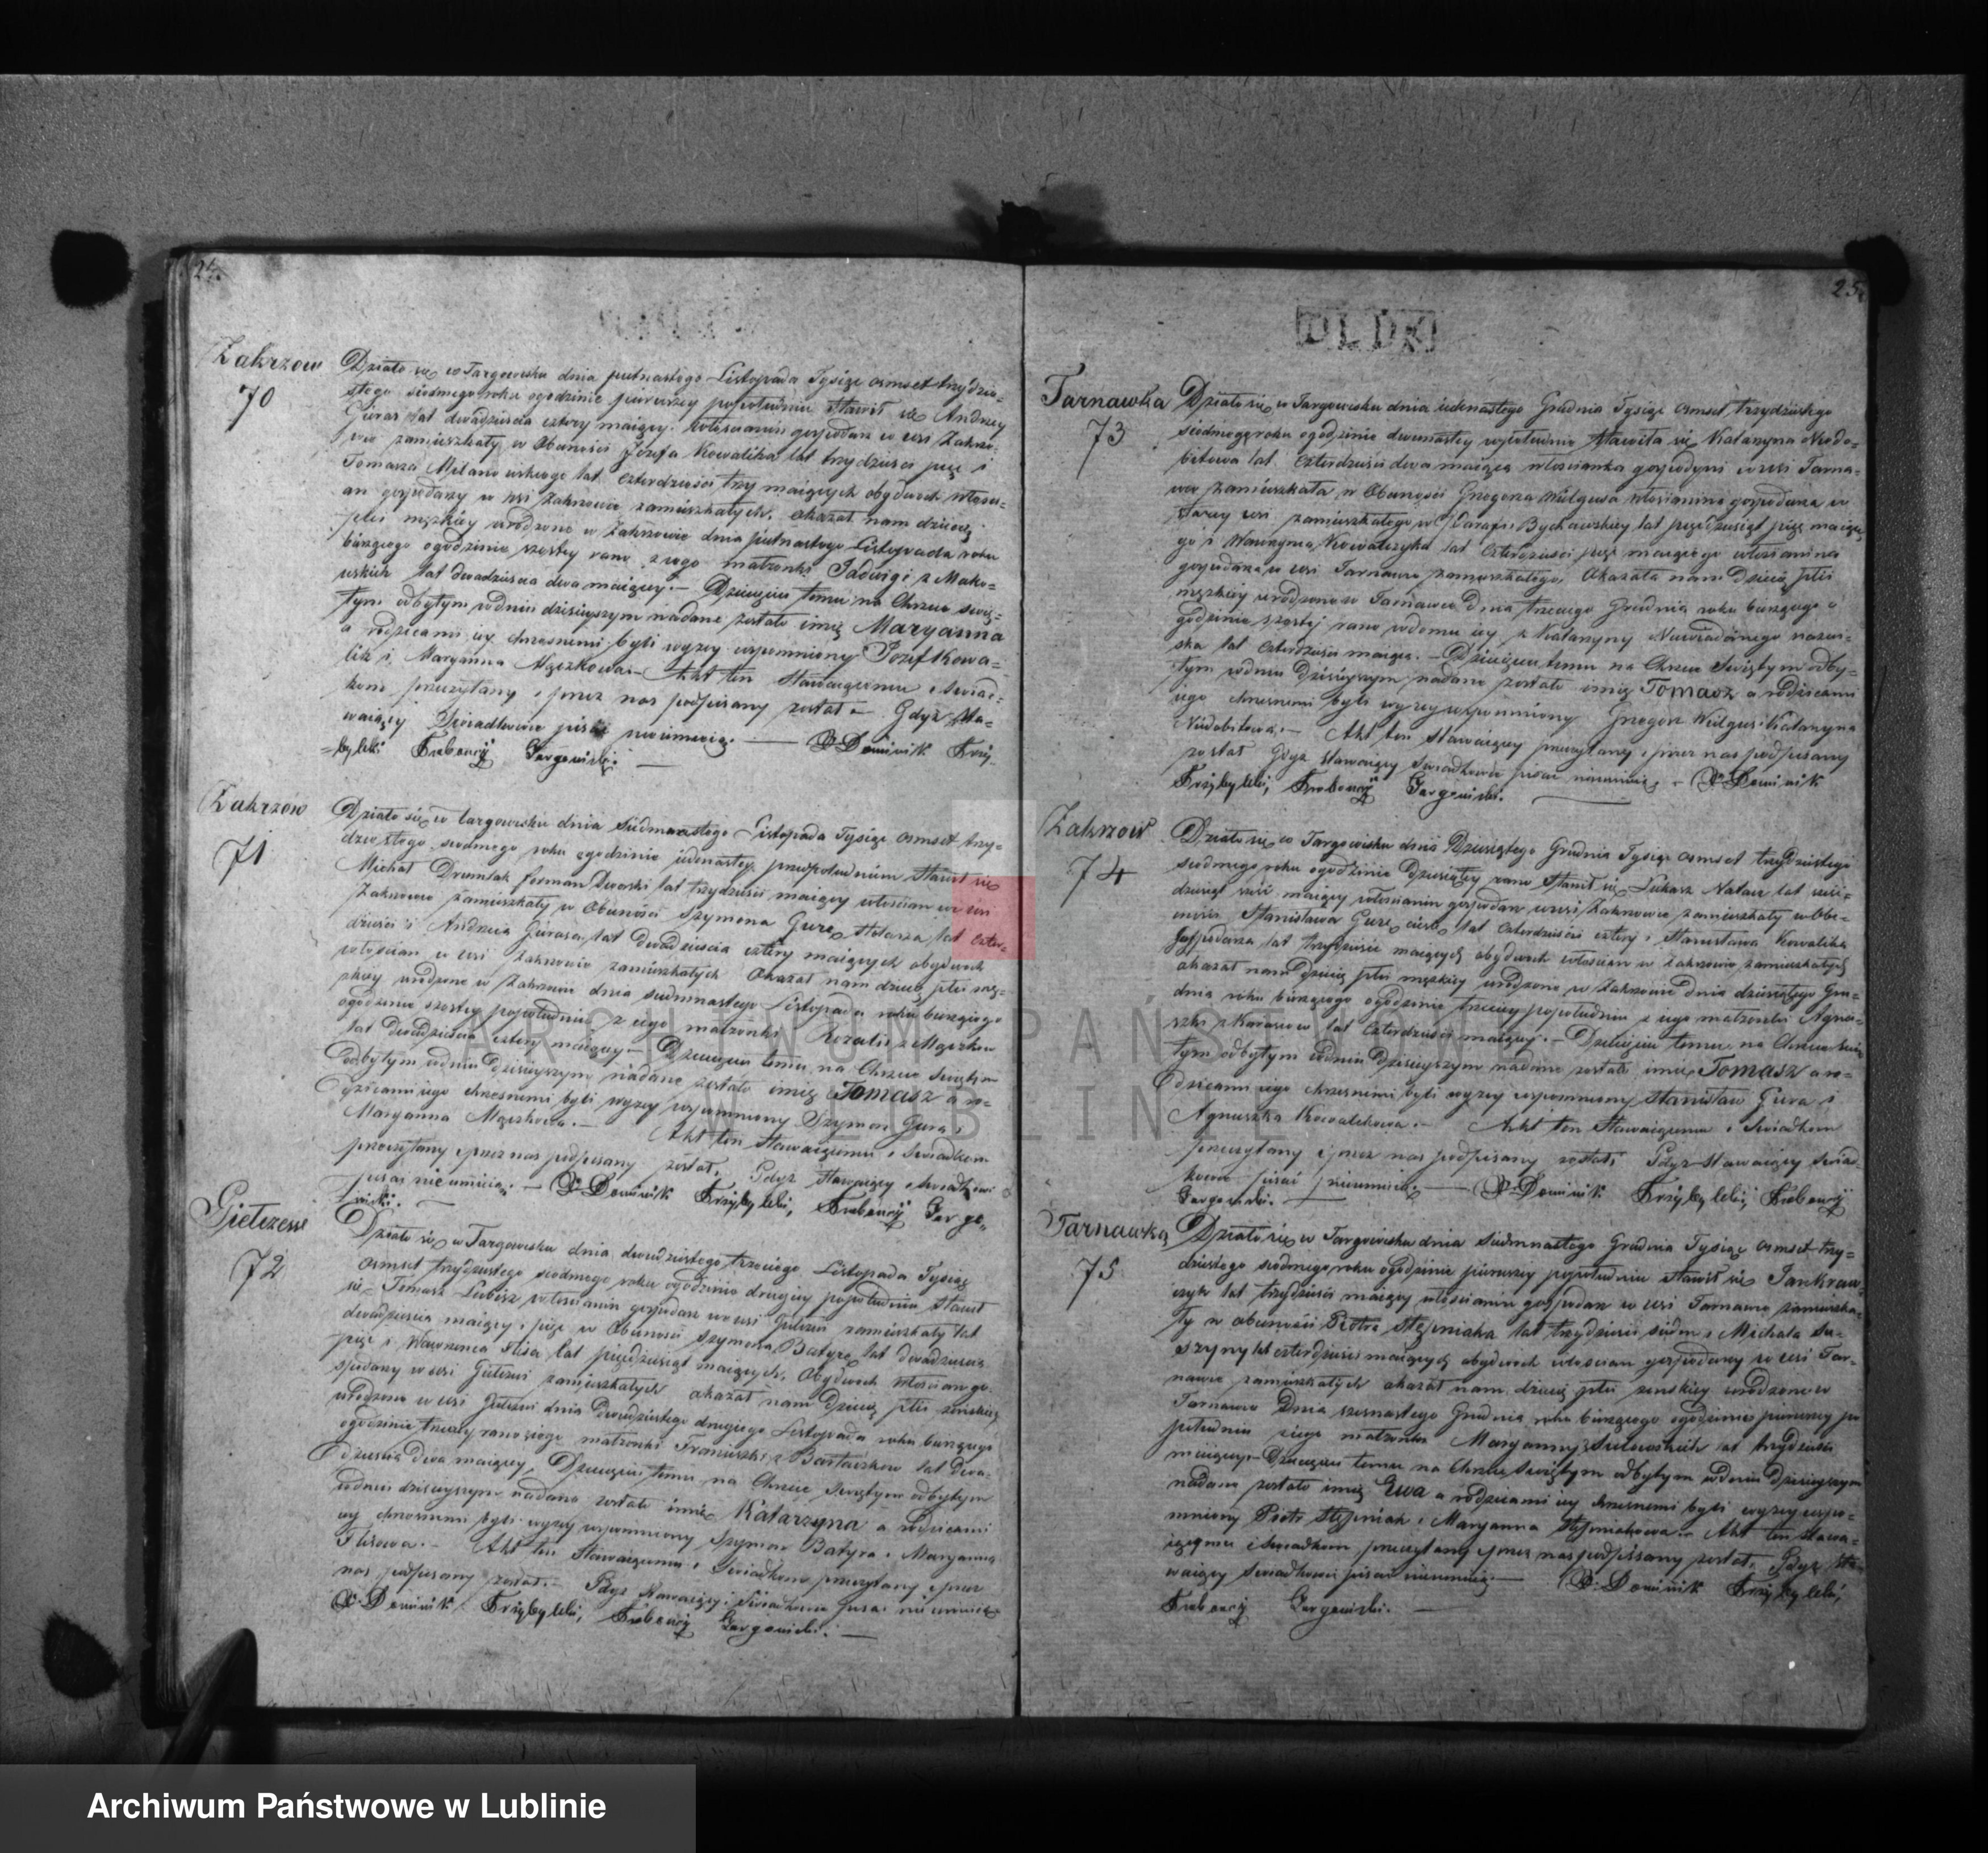 24.
Zakrzow
70
Działo się w Targowisku dnia piętnastego Listopada Tysiąc osmset trzydzie-
stego siodmego roku o godzinie pierwszey popołudniu Stawił się Andrzey
Guras lat dwadzieścia cztery maiący włościanin gospodarz w wsi Zakrzo-
wie zamieszkały w Obecności Józefa Kowalika lat trzydzieści pięć i
Tomasza Milanowskiego lat czterdzieści trzy maiących obydwóch włości-
an gospodarzy w wsi Zakrzowie zamieszkałych, okazał nam dziecię
płci męzkiey urodzone w Zakrzowie dnia piętnastego Listopada roku
bieżącego o godzinie szostey rano z iego małżonki Jadwigi z Mako-
wskich lat dwadzieścia dwa maiącey.– Dziecięciu temu na Chrzcie Swię-
tym odbytym w dniu dzisieyszym nadane zostało imię Maryanna
a rodzicami iey chrzesnemi byli wyżey wspomniony Józef Kowa-
lik i Maryanna Mączkowa.– Akt ten Stawaiącemu i Swiad-
kom przeczytany i przez nas podpisany został.– Gdyż Sta-
waiący i Swiadkowie pisać nieumieią. — X. Dominik Trzy-
bylski Targowiski. —
Zakrzów
71
Działo się w Targowisku dnia Siedmnastego Listopada Tysiąc osmset trzy-
dziestego siodmego roku o godzinie iedenastey przedpołudniem Stawił się
Michał Drumlak forman Dworski lat trzydzieści maiący włościan we wsi
Zakrzowie zamieszkały w Obecności Szymona Gure Stolarza lat czter-
dzieści i Andrzeia Gurasa lat dwadzieścia cztery maiących obydwóch
włościan w wsi Zakrzowie zamieszkałych Okazał nam dziecię płci męz-
kiey urodzone w Zakrzowie dnia siedmnastego Listopada roku bieżącego
o godzinie szostey popołudniu z iego małżonki Rozalii z Mączków
lat dwadzieścia cztery maiącey.– Dziecięciu temu na Chrzcie Swiętym
odbytym w dniu dzisieyszym nadane zostało imię Tomasz a ro-
dzicami iego chrzesnemi byli wyżey wspomniony Szymon Gura i
Maryanna Mączkowa.– Akt ten Stawaiącemu i Swiadkom
przeczytany i przez nas podpisany został, Gdyż Stawaiący i Swiadkowie
pisać nieumieią. — X. Dominik Trzybylski, Targo-
wiski. —
Giełczew
72
Działo się w Targowisku dnia dwudziestego trzeciego Listopada Tysiąc
osmset trzydziestego siodmego roku o godzinie drugiey popołudniu Stawił
się Tomasz Lubisz włościanin gospodarz we wsi Giełczwi zamieszkały lat
dwadzieścia maiący i pięć w Obecności Szymona Batyry lat dwadzieścia
pięć i Wawrzenca Flisa lat pięćdziesiąt maiących, Obydwóch Włościan go-
spodarzy w wsi Giełczwi zamieszkałych okazał nam Dziecię płci żeńskiey
urodzone w wsi Giełczwi dnia Dwudziestego drugiego Listopada roku bieżącego
o godzinie trzeciey rano z iego małżonki Franciszki z Bartaszkow lat Dwa-
dzieścia dwa maiącey, Dziecięciu temu na Chrzcie Swiętym odbytym
w dniu dzisieyszym nadane zostało imię Katarzyna a rodzicami
iey chrzesnemi byli wyżey wspomniony Szymon Batyra i Maryanna
Flisowa.– Akt ten Stawaiącemu i Swiadkom przeczytany i przez
nas podpisany został.– Gdyż Stawaiący i Swiadkowie pisać nieumieią
X. Dominik Trzybylski, Targowiski. —
25.
DLDK
Tarnawka
73
Działo się w Targowisku dnia iedenastego Grudnia Tysiąc osmset trzydziestego
siodmego roku o godzinie dwunastey w południe Stawiła się Katarzyna Niedo-
bitowa lat czterdzieści dwa maiąca włościanka gospodyni w wsi Tarna-
wce zamieszkała, w Obecności Grzegorza Wulgusa włościanina gospodarza w
Starey wsi zamieszkałego w Parafii Bychawskiey lat pięćdziesiąt pięć maiące-
go i Wawrzyna Kowalczyka lat czterdzieści pięć maiącego włościanina
gospodarza w wsi Tarnawce zamieszkałego, Okazała nam Dziecię płci
męzkiey urodzone w Tarnawce Dnia trzeciego Grudnia roku bieżącego o
godzinie szostej rano w domu iey z Katarzyny Niewiadomego nazwi-
ska lat czterdzieści maiąca.– Dziecięciu temu na Chrzcie Swiętym odby-
tym w dniu Dzisieyszym nadane zostało imię Tomasz a rodzicami
iego chrzesnemi byli wyżey wspomniony Grzegorz Wulgus i Katarzyna
Niedobitowa.– Akt ten Stawaiącey przeczytany i przez nas podpisany
został Gdyż Stawaiący i Swiadkowie pisać nieumieią. – X. Dominik
Trzybylski, Targowiski. —
Zakrzow
74
Działo się w Targowisku dnia Dziesiątego Grudnia Tysiąc osmset trzydziestego
siodmego roku o godzinie Dziesiątey rano Stawił się Łukasz Natan lat sześć-
dziesiąt sześć maiący włościanin gospodarz w wsi Zakrzowie zamieszkały w Obe-
cności Stanisława Gury cieśli lat czterdzieści cztery i Stanisława Kowalika
Gospodarza lat trzydzieści maiących obydwóch włościan w Zakrzowie zamieszkałych
okazał nam dziecię płci męzkiey urodzone w Zakrzowie Dnia dziesiątego Gru-
dnia roku bieżącego o godzinie trzeciey popołudniu z iego małżonki Agnie-
szki z Karasiow lat czterdzieści maiącey.– Dziecięciu temu na Chrzcie Swię-
tym odbytym w dniu Dzisieyszym nadane zostało imię Tomasz a ro-
dzicami iego chrzesnemi byli wyżey wspomniony Stanisław Gura i
Agnieszka Kowalikowa.– Akt ten Stawaiącemu i Swiadkom
przeczytany i przez nas podpisany został, Gdyż Stawaiący i Swiad-
kowie pisać nieumieią. — X. Dominik Trzybylski,
Targowiski. —
Tarnawka
75
Działo się w Targowisku dnia Siedmnastego Grudnia Tysiąc osmset trzy-
dziestego siodmego roku o godzinie pierwszey popołudniu Stawił się Jan Kraw-
czyk lat trzydzieści maiący włościanin gospodarz w wsi Tarnawce zamieszka-
ły w obecności Piotra Stępniaka lat trzydzieści siedm i Michała Su-
szyny lat czterdzieści maiących obydwóch włościan gospodarzy w wsi Tar-
nawce zamieszkałych okazał nam dziecię płci zenskiey urodzone w
Tarnawce Dnia szesnastego Grudnia roku bieżącego o godzinie pierwszey po
południu z iego małżonki Maryanny z Sulowskich lat trzydzieści
maiącey.– Dziecięciu temu na Chrzcie Swiętym odbytym w dniu Dzisieyszym
nadane zostało imię Ewa a rodzicami iey chrzesnemi byli wyżey wspo-
mniony Piotr Stępniak i Maryanna Stępniakowa.– Akt ten stawa-
iącemu i Swiadkom przeczytany i przez nas podpisany został, Gdyż Sta-
waiący i Swiadkowie pisać nieumieią. — X. Dominik Trzybylski,
Targowiski. —
ARCHIWUM PAŃSTWOWE
W LUBLINIE
Archiwum Państwowe w Lublinie